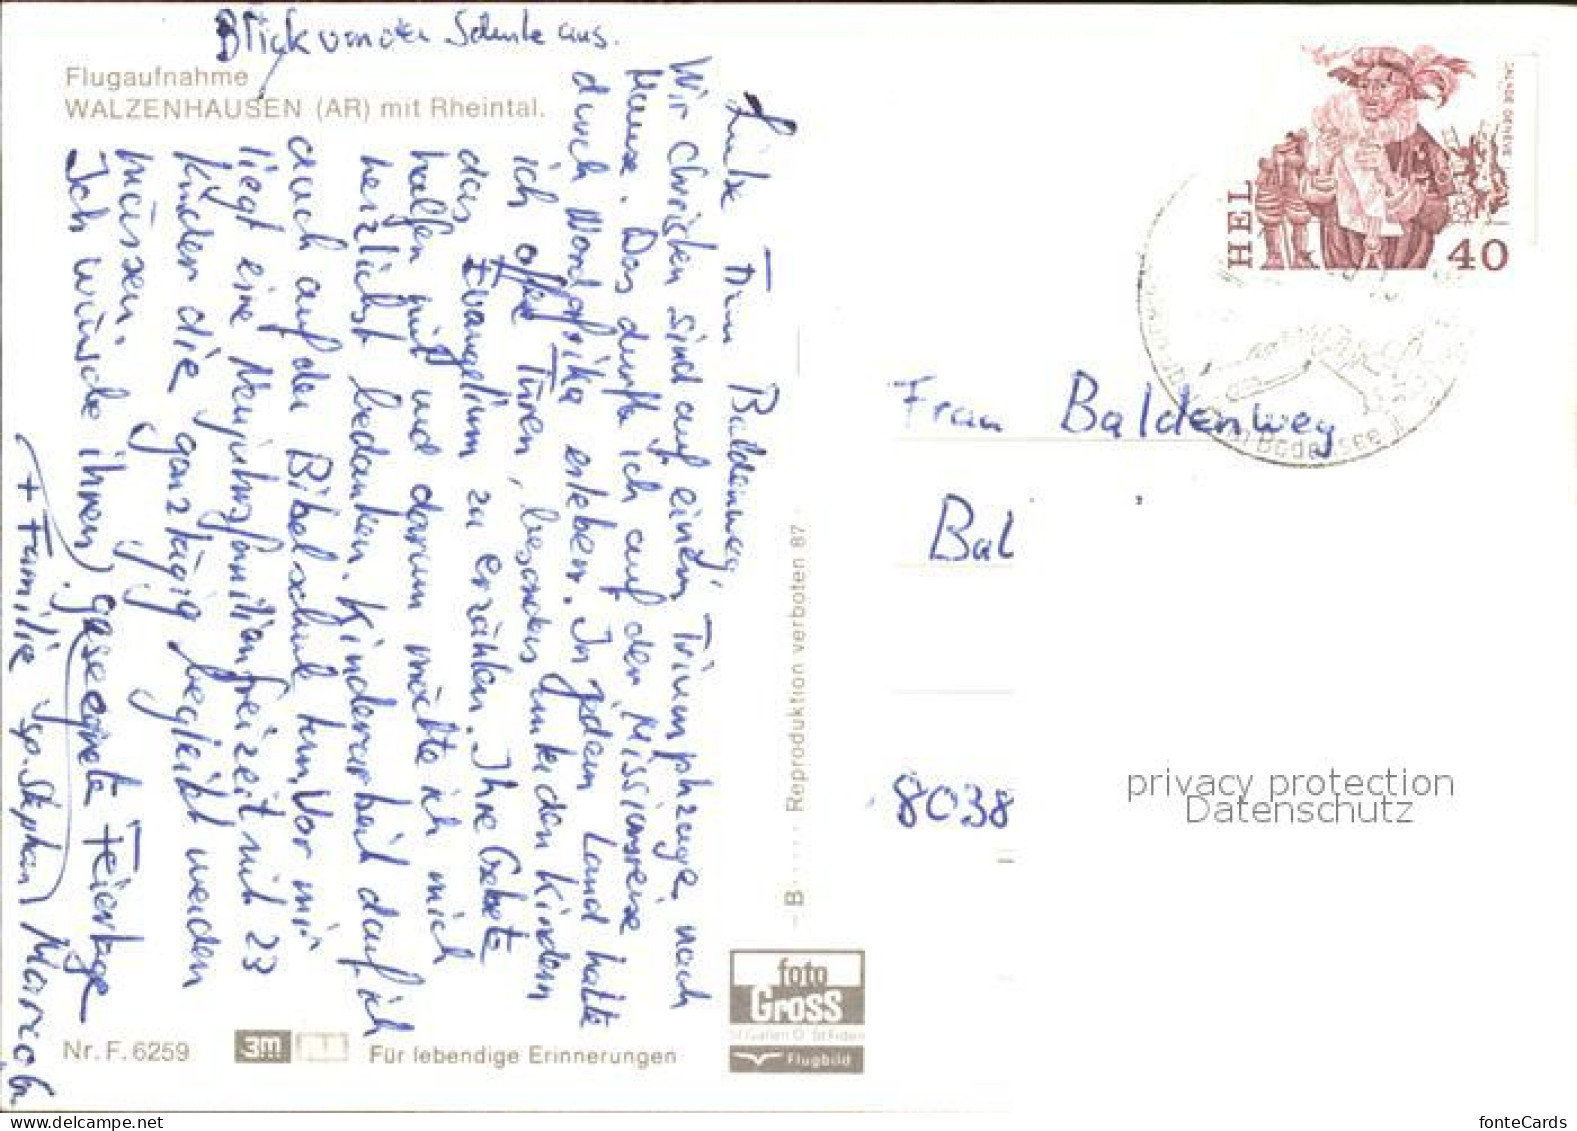 Blick von der Schule aus.
Flugaufnahme
WALZENHAUSEN (AR) mit Rheintal.
Liebe Frau Baldenweg,
Wir Christen sind auf einem Triumphzuge nach
Hause. Das durfte ich auf der Missionsreise
durch Nordafrika erleben. In jedem Land hatte
ich offene Türen, besonders um bei den Kindern
das Evangelium zu erzählen. Ihre Gebete
halfen mit und darum möchte ich mich
herzlichst bedanken. Kinderarbeit darf ich
auch auf der Bibelschule tun. Vor mir
liegt eine Neujahrsfamilienfreizeit mit 23
Kinder die ganztägig begleitet werden
müssen.
Ich wünsche ihnen gesegnete Feiertage
+ Familie
Nr. F. 6259
3m
Für lebendige Erinnerungen
B ..... Reproduktion verboten 87
foto
Gross
St.Gallen O. St.Fiden
Flugbild
HEL
40
Bodensee
Frau Baldenweg
Bal
8038
privacy protection
Datenschutz
fonteCards